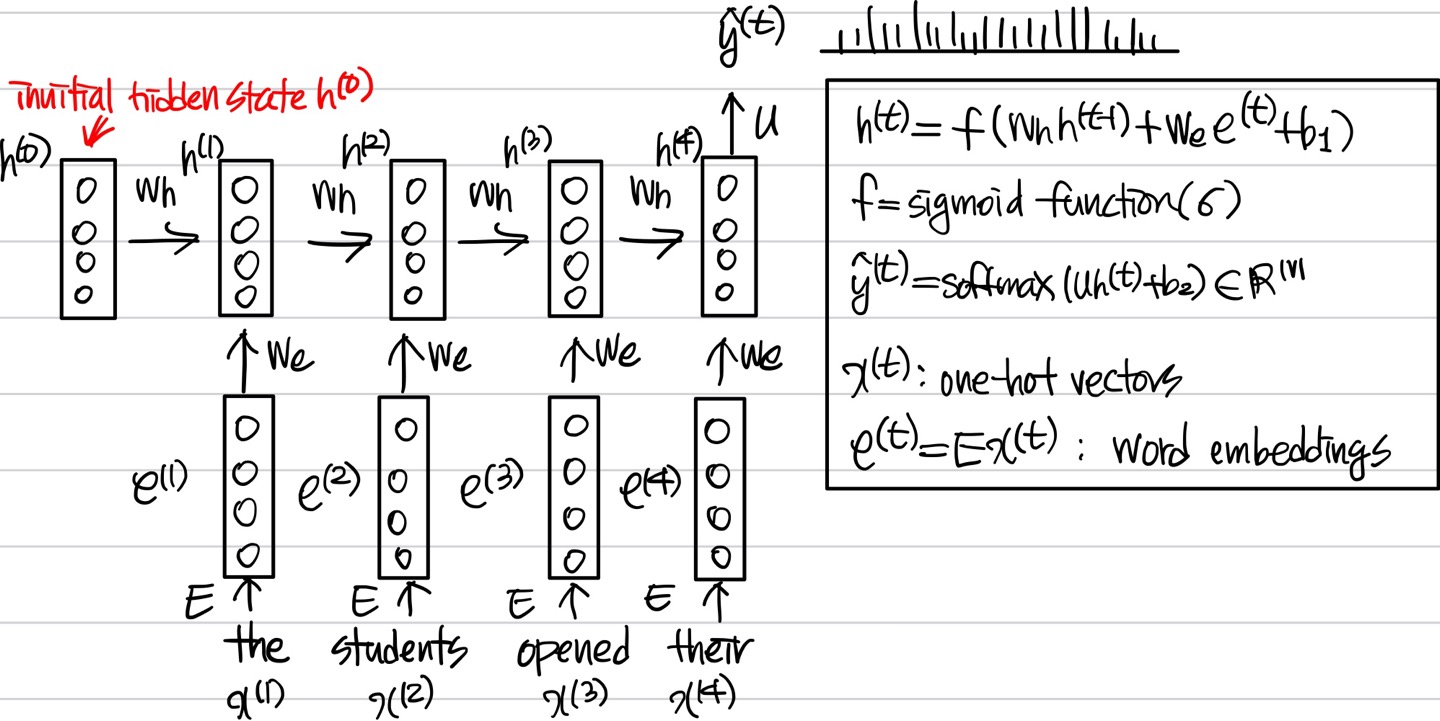 ŷ(t)
inuitial hidden state h(0)
h(0) h(1) h(2) h(3) h(4) U
Wh Wh Wh Wh
We We We We
e(1) e(2) e(3) e(4)
E E E E
the students opened their
x(1) x(2) x(3) x(4)
h(t) = f(Wh h(t-1) + We e(t) + b1)
f = sigmoid function(σ)
ŷ(t) = softmax(Uh(t) + b2) ∈ R|V|
x(t): one-hot vectors
e(t) = Ex(t) : word embeddings